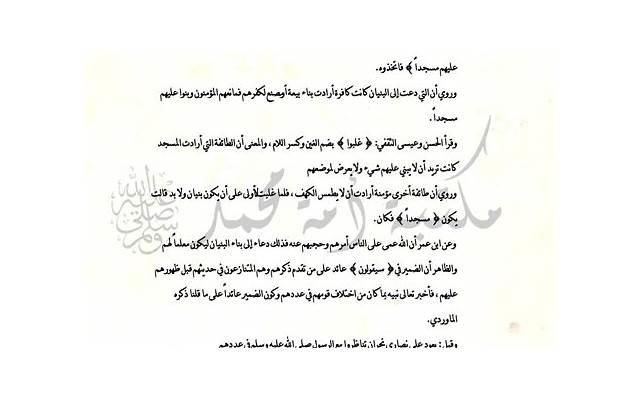 عليهم مسجداً ﴾ فاتخذوه.
وروي أن التي دعت إلى البنيان كانت كافرة أرادت بناء بيعة أو مصنع لكفرهم فمانعهم المؤمنون وبنوا عليهم
مسجداً .
وقرأ الحسن وعيسى الثقفي: ﴿ غلبوا ﴾ بضم الغين وكسر اللام ، والمعنى أن الطائفة التي أرادت المسجد
كانت تريد أن لا يبني عليهم شيء ولا يعرض لموضعهم
وروي أن طائفة أخرى مؤمنة أرادت أن لا يطمس الكهف ، فلما غلبت الأولى على أن يكون بنيان ولا بد قالت
يكون ﴿ مسجداً ﴾ فكان.
وعن ابن عمر أن الله عمى على الناس أمرهم وحجبهم عنه فذلك دعاء إلى بناء البنيان ليكون معلماً لهم
والظاهر أن الضمير في ﴿ سيقولون ﴾ عائد على من تقدم ذكرهم وهم المتنازعون في حديثهم قبل ظهورهم
عليهم ، فأخبر تعالى نبيه بما كان من اختلاف قومهم في عددهم وكون الضمير عائداً على ما قلنا ذكره
الماوردي.
وقيل : يعود على نصارى نجران تناظروا مع الرسول صلى الله عليه وسلم في عددهم
مكتبة أمة محمد
صلى الله عليه وسلم